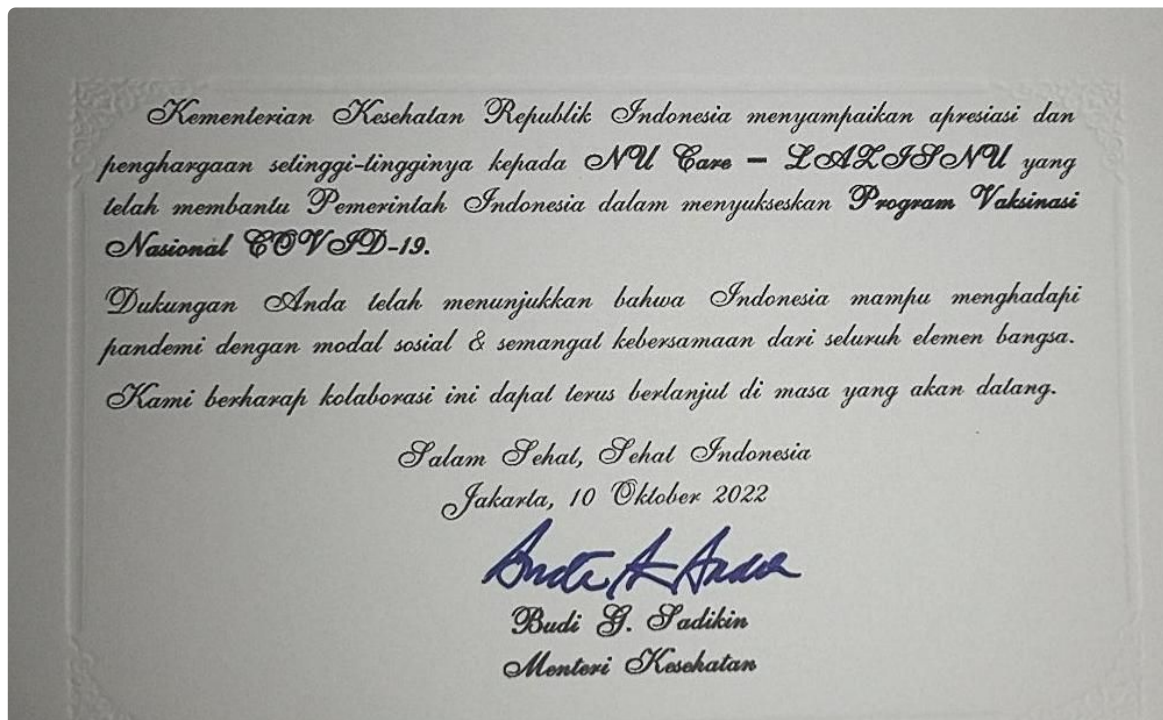 Kementerian Kesehatan Republik Indonesia menyampaikan apresiasi dan
penghargaan setinggi-tingginya kepada NU Care – LAZISNU yang
telah membantu Pemerintah Indonesia dalam menyukseskan Program Vaksinasi
Nasional COVID-19.
Dukungan Anda telah menunjukkan bahwa Indonesia mampu menghadapi
pandemi dengan modal sosial & semangat kebersamaan dari seluruh elemen bangsa.
Kami berharap kolaborasi ini dapat terus berlanjut di masa yang akan datang.
Salam Sehat, Sehat Indonesia
Jakarta, 10 Oktober 2022
Budi G. Sadikin
Menteri Kesehatan